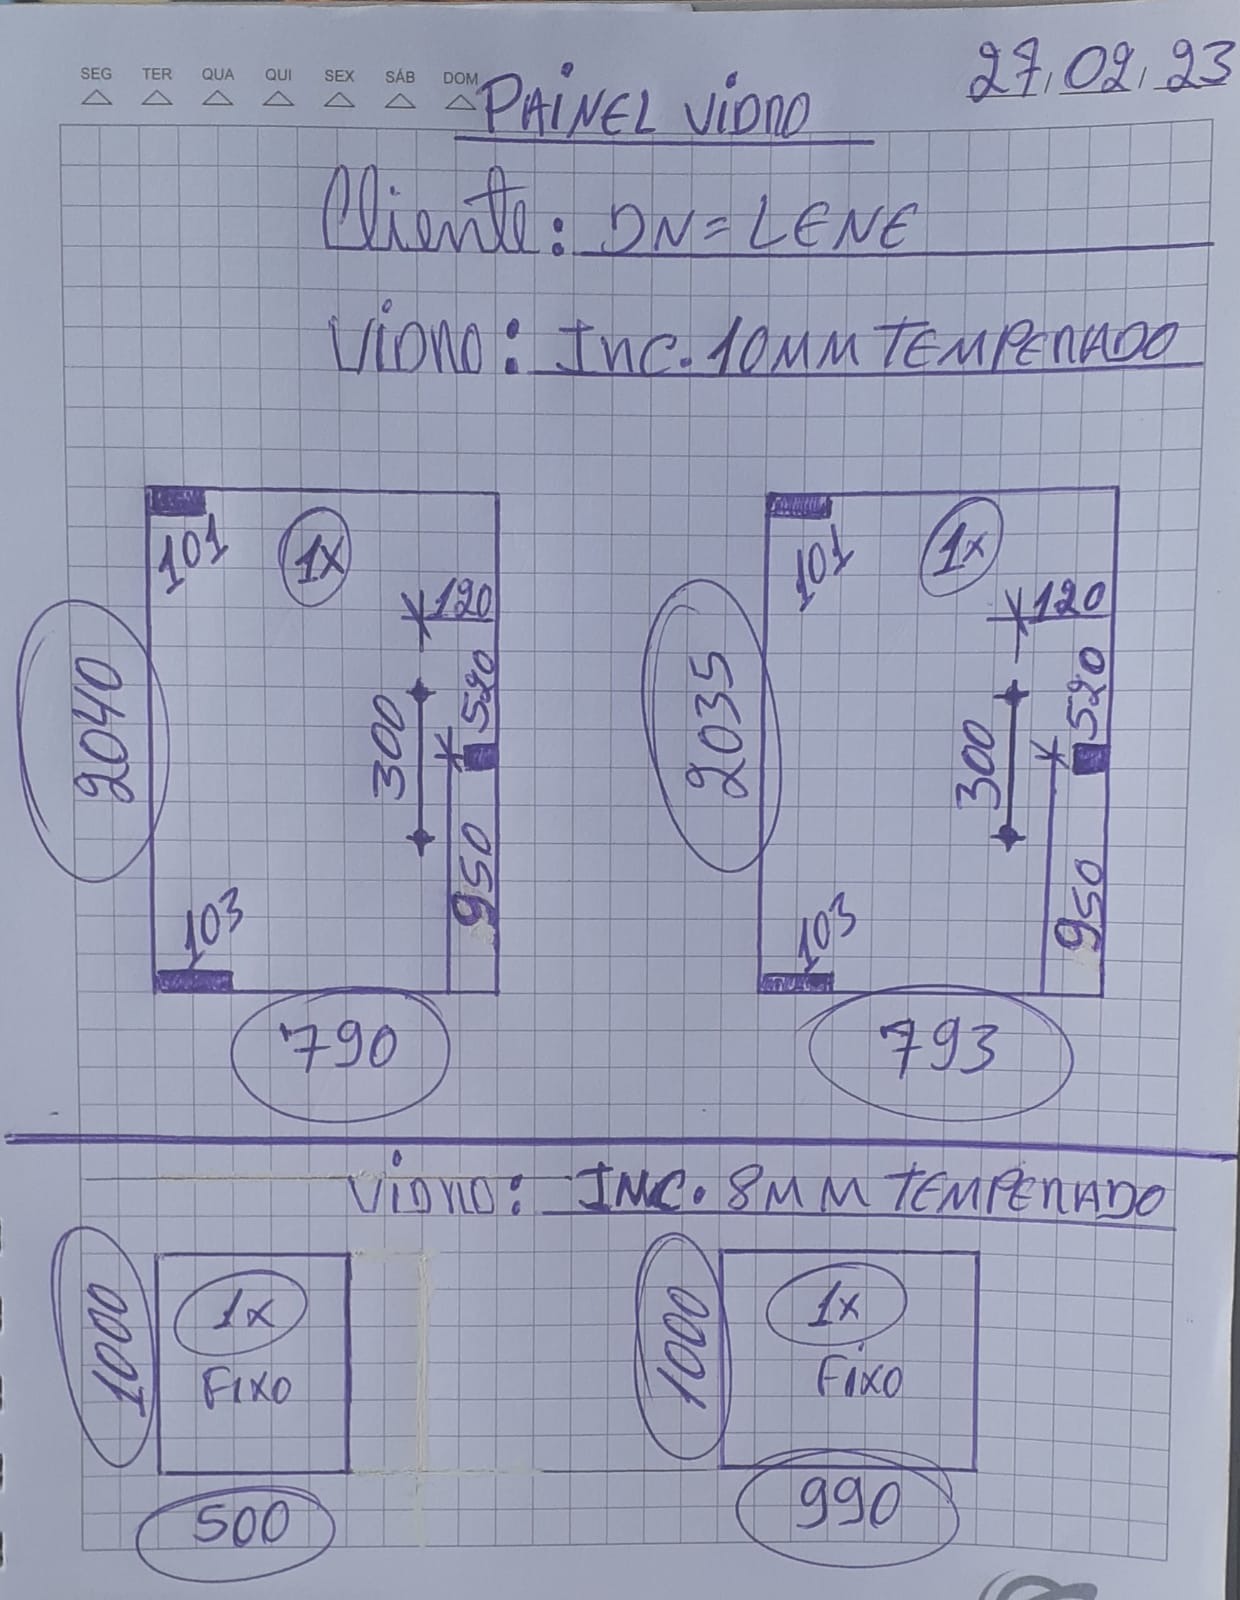 SEG TER QUA QUI SEX SÁB DOM
27.02.23
PAINEL VIDRO
Cliente: DN=LENE
VIDRO: INC. 10MM TEMPERADO
101 1x
120
520
300
950
2040
103
790
101 1x
120
520
300
950
2035
103
793
VIDRO: INC. 8MM TEMPERADO
1000
1x
FIXO
500
1000
1x
FIXO
990